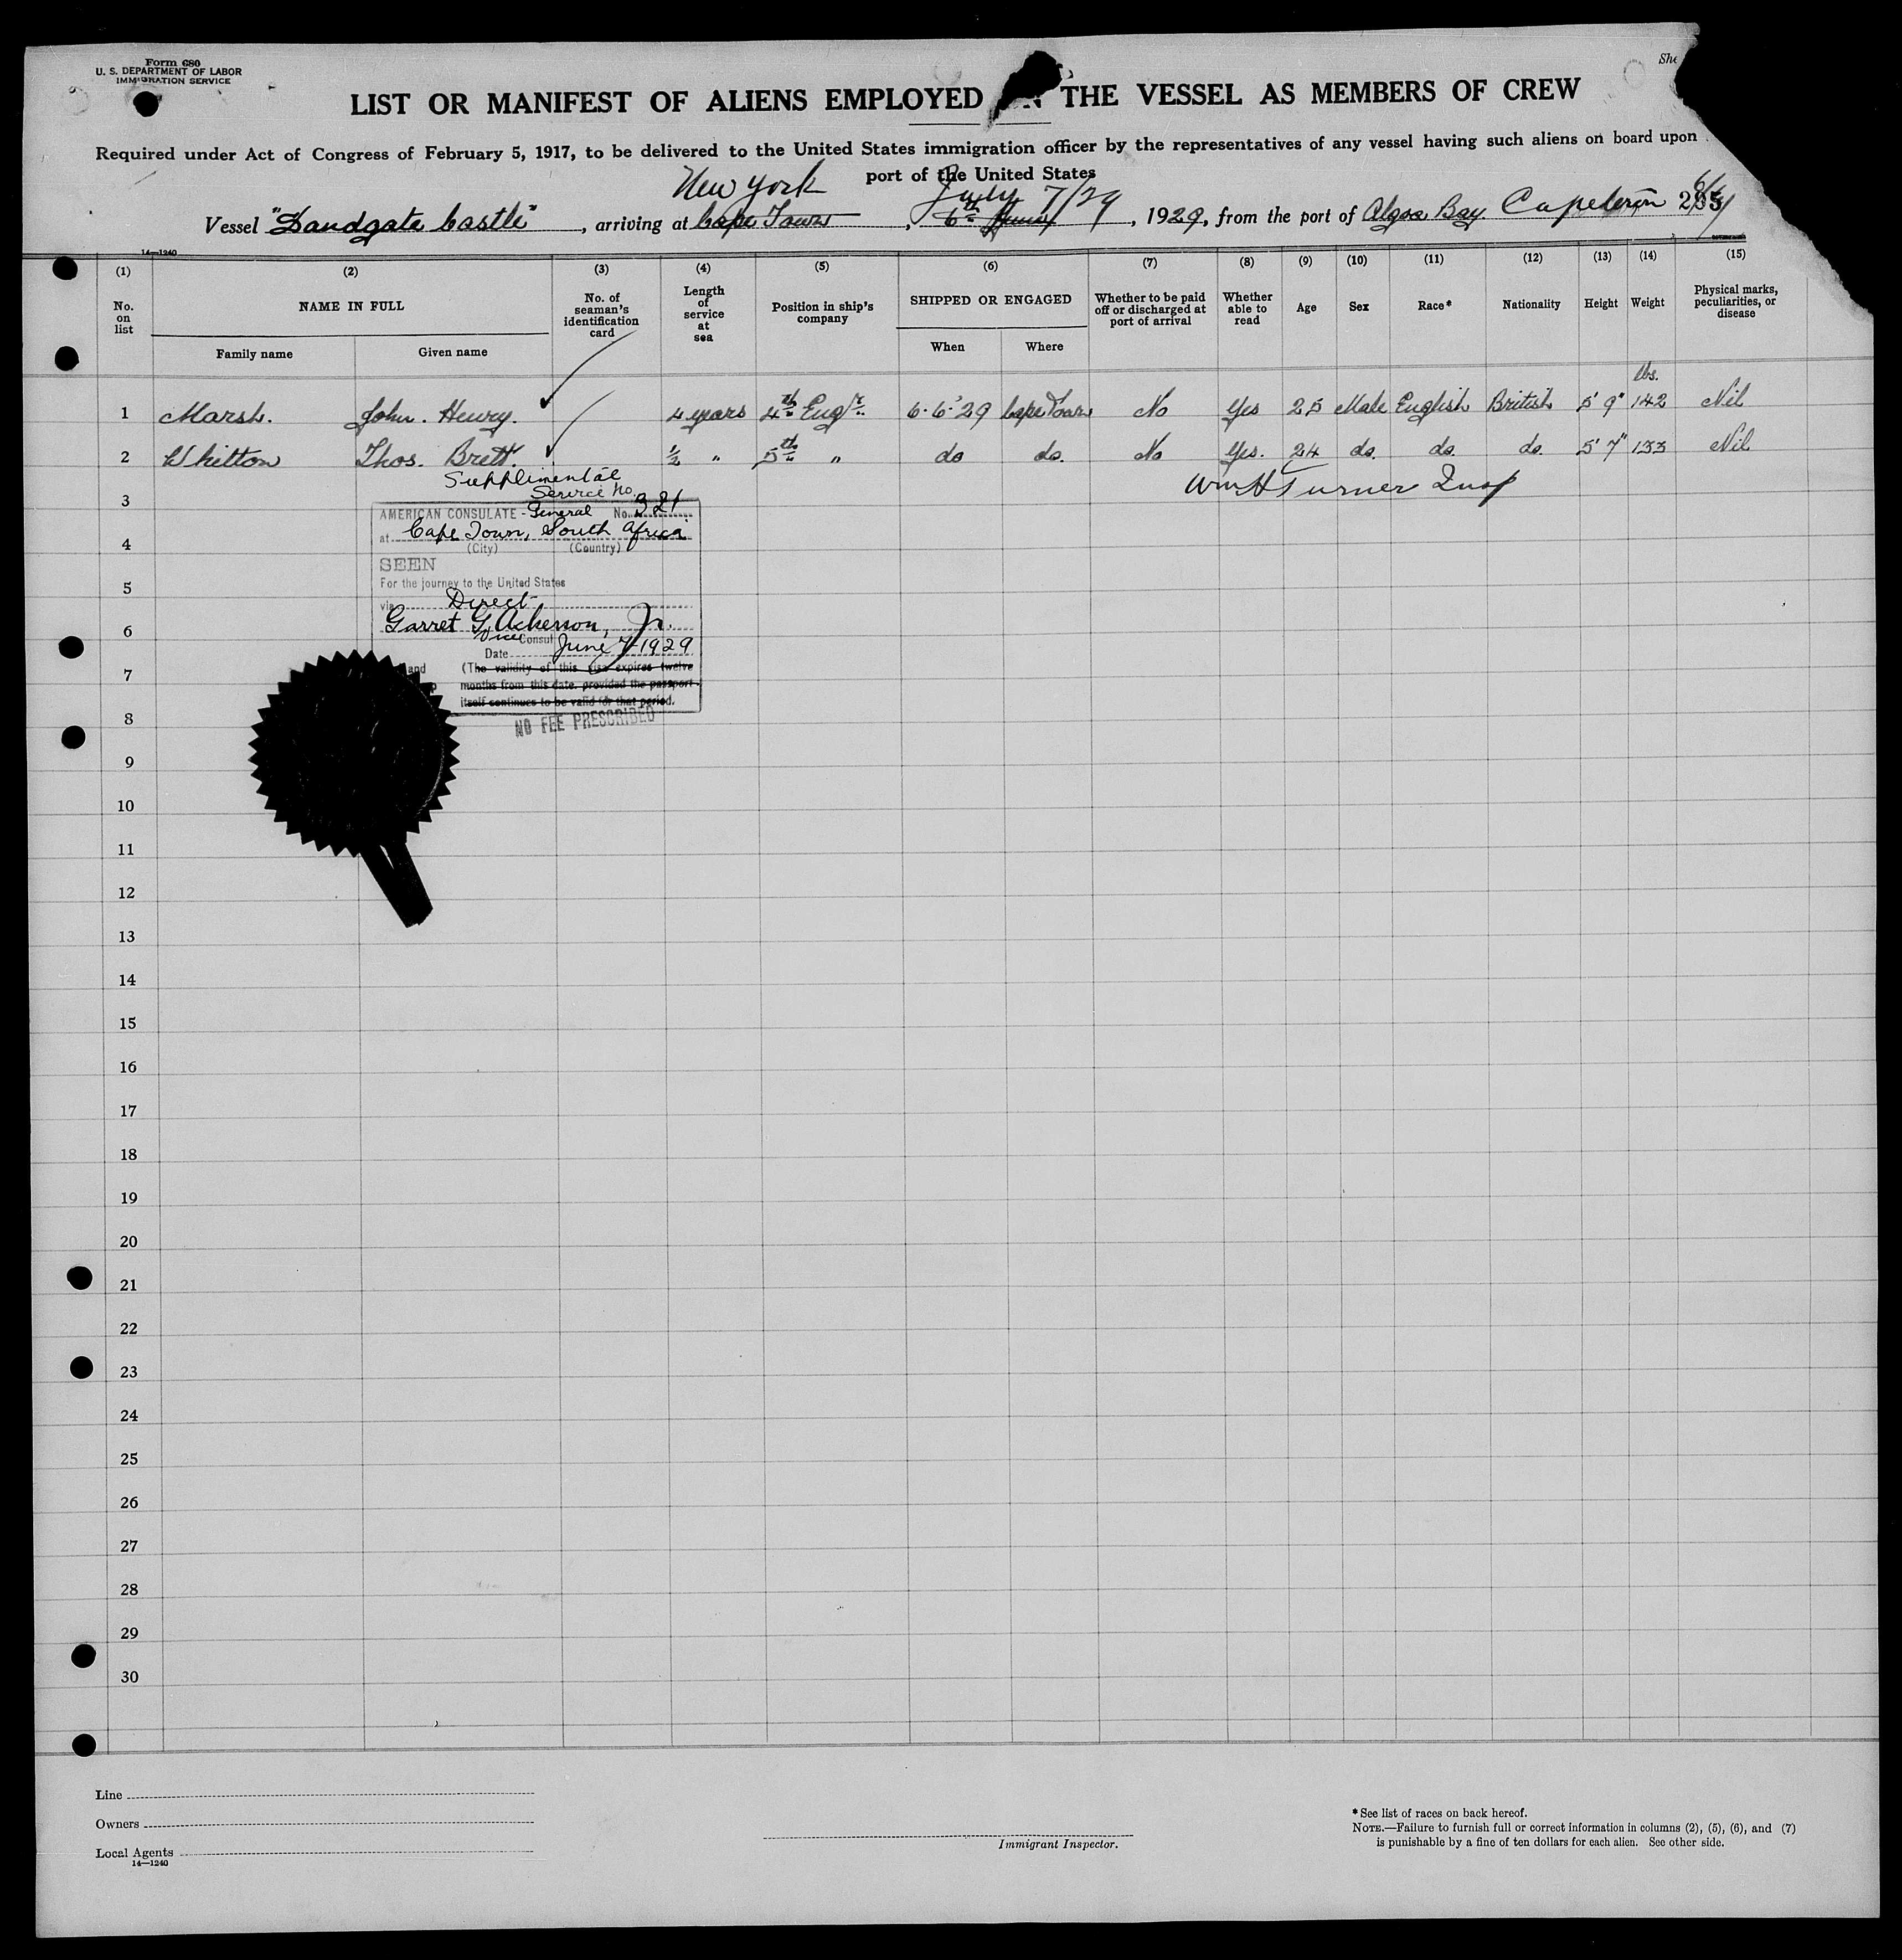 Form 680
U. S. DEPARTMENT OF LABOR
IMMIGRATION SERVICE
She
LIST OR MANIFEST OF ALIENS EMPLOYED THE VESSEL AS MEMBERS OF CREW
Required under Act of Congress of February 5, 1917, to be delivered to the United States immigration officer by the representatives of any vessel having such aliens on board upon
port of the United States
New York July 7/29
Vessel "Sandgate Castle", arriving at Cape Town, 6th June, 1929, from the port of Algoa Bay Capetown 6/7
14—1240
(1) (2) (3) (4) (5) (6) (7) (8) (9) (10) (11) (12) (13) (14) (15)
No. on list NAME IN FULL No. of seaman's identification card Length of service at sea Position in ship's company SHIPPED OR ENGAGED Whether to be paid off or discharged at port of arrival Whether able to read Age Sex Race* Nationality Height Weight Physical marks, peculiarities, or disease
Family name Given name When Where
lbs.
1 Marsh. John. Henry. 4 years 4th Engr. 6.6.29 Cape Town No Yes 25 Male English British 5' 9" 142 Nil
2 Whitton Thos. Brett. ½ " 5th " do do. No Yes. 24 do. do. do. 5' 7" 133 Nil
Supplimental
Service No.
Wm H Turner Insp
3
AMERICAN CONSULATE - General No. 321
at Cape Town, South Africa
4
(City) (Country)
SEEN
For the journey to the United States
5
via Direct
Garret G. Ackerson, Jr.
6
Vice Consul
Date June 7 1929
7
and (The validity of this visa expires twelve
months from this date, provided the passport
itself continues to be valid for that period.
8
NO FEE PRESCRIBED
9
10
11
12
13
14
15
16
17
18
19
20
21
22
23
24
25
26
27
28
29
30
Line
Owners
Local Agents
14—1240
Immigrant Inspector.
* See list of races on back hereof.
NOTE.—Failure to furnish full or correct information in columns (2), (5), (6), and (7)
is punishable by a fine of ten dollars for each alien. See other side.